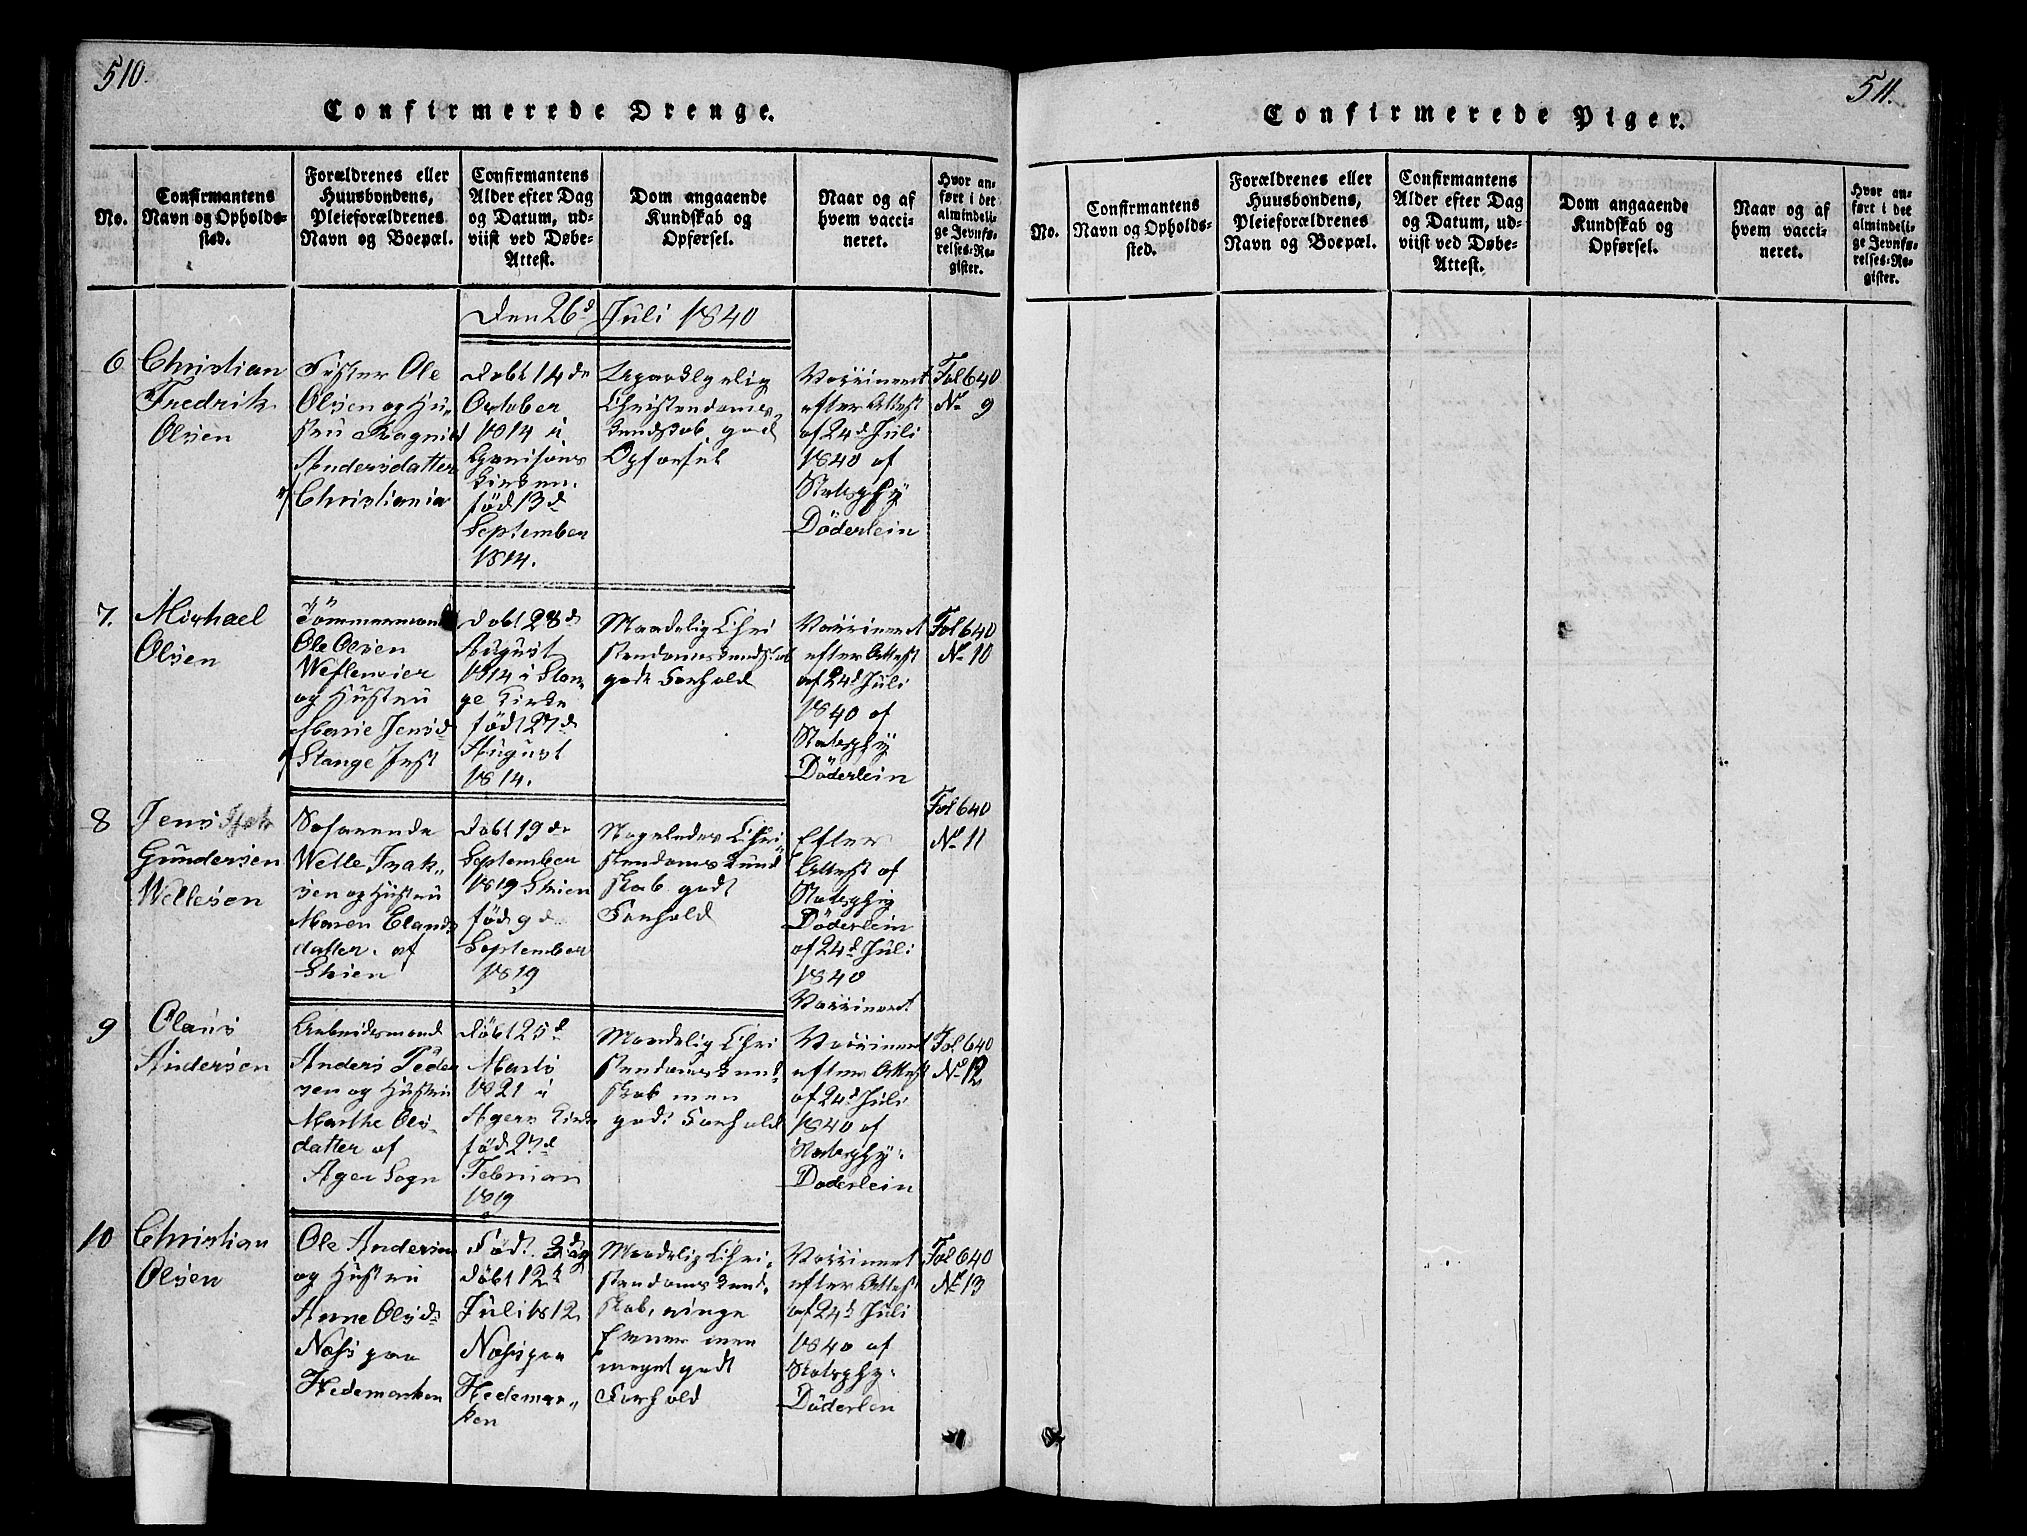 510.
Confirmerede Drenge.
No.
Confirmantens
Navn og Opholds-
sted.
Forældrenes eller
Huusbondens,
Pleieforældrenes
Navn og Boepæl.
Confirmantens
Alder efter Dag
og Datum, ud-
viist ved Døbe-
Attest.
Dom angaaende
Kundskab og
Opførsel.
Naar og af
hvem vacci-
neret.
Hvor an-
ført i det
almindeli-
ge Jevnfø-
relses-Re-
gister.
Den 26d Juli 1840
6
Christian
Fredrik
Olsen
Fisker Ole
Olsen og Hu-
stru Ragnild
Andersdatter
af Christiania
Døbt 14de
October
1814 i
Garnisons
Kirken.
fød 13d
September
1814.
Upaaklagelig
Christendoms-
kundskab god
Opførsel
Vaccineret
efter Attest
af 24d Juli
1840 af
Statsphy
Döderlein
Fol 640
No 9
7.
Michael
Olsen
Tömmermand
Ole Olsen
og Hustru
Marie Jensd
Stange Præst
Døbt 28de
August
1814 i Stan-
ge Kirke
födt 27de
August
1814.
Maadelig Chri
stendomskundskab
godt Forhold
Vaccineret
efter Attest
af 24d Juli
1840 af
Statsphy
Döderlein
Fol 640
No 10
8
Jens
Gundersen
Wellesen
Søfarende
Welle Isak-
sen og Hustru
Maren Elands
datter. af
Skien
Døbt 19de
September
1819 Skien
född 9de
September
1819
Nogeledes Chri-
stendoms Kund
skab godt
Forhold
Efter
Attest af
Statsphy
Döderlein
af 24d Juli
1840
Vaccineret
Fol 640
No 11
9
Olaus
Andersen
Arbeidsmand
Anders Peder
sen og Hustru
Marthe Ols-
datter af
Ager Sogn
Döbt 25d
Marts
1821 i
Agers Kirke
född 27d
Februar
1819
Maadelig Chri
stendomskund-
skab men
godt Forhold
Vaccineret
efter Attest
af 24d Juli
1840 af
Statsphy:
Döderlein
Fol 640
No 12
10
Christian
Olsen
Ole Andersen
og Hustru
Anne Olsd
Næss paa
Hedemarken
Födt 3d og
döbt 12te
Juli 1812
Næss paa
Hedemar-
ken
Maadelig Chri-
stendomskund-
skab, ringe
Evner men
meget godt
Forhold
Vaccineret
efter Attest
af 24d Juli
1840 af
Statsphy:
Döderlen
Fol 640
No 13
511.
Confirmerede Piger.
No.
Confirmantens
Navn og Opholds-
sted.
Forældrenes eller
Huusbondens,
Pleieforældrenes
Navn og Boepæl.
Confirmantens
Alder efter Dag
og Datum, ud-
viist ved Døbe-
Attest.
Dom angaaende
Kundskab og
Opførsel.
Naar og af
hvem vacci-
neret.
Hvor an-
ført i det
almindeli-
ge Jevnfø-
relses-Re-
gister.